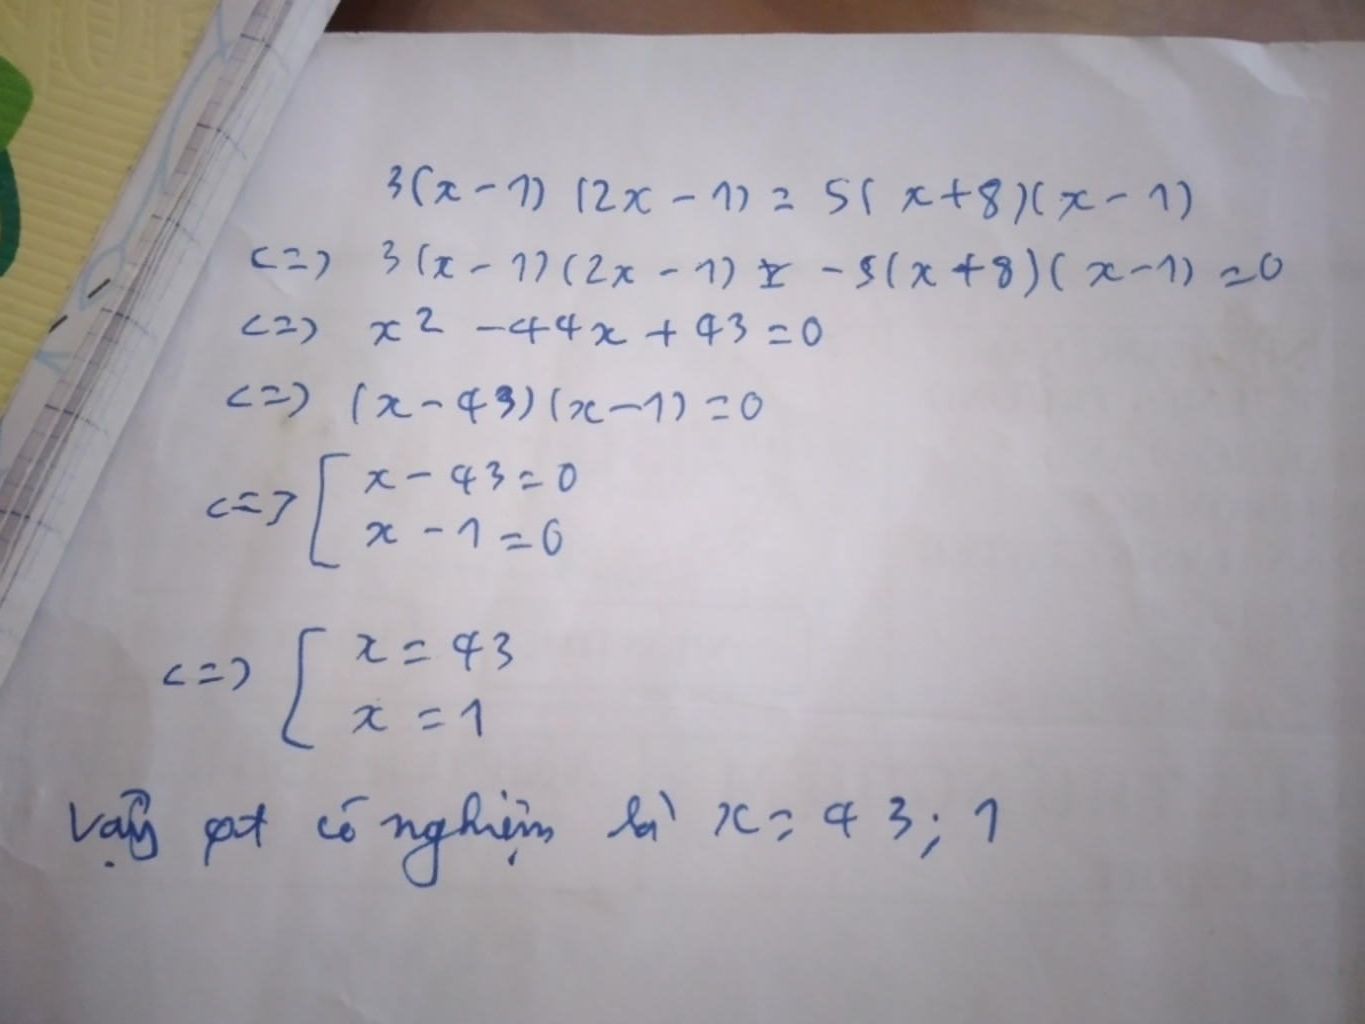 3(x-1)(2x-1)=5(x+8)(x-1)
<=> 3(x-1)(2x-1) -5(x+8)(x-1)=0
<=> x² -44x+43=0
<=> (x-43)(x-1)=0
<=> [ x-43=0
x-1=0
<=> [ x=43
x=1
Vậy pt có nghiệm là x=43;1